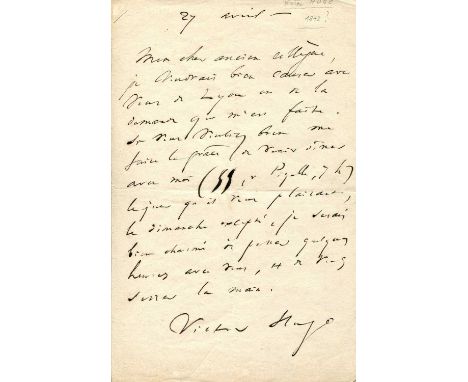 27 avril —
Victor HUGO
1872?
Mon cher ancien collègue,
je voudrais bien causer avec
vous de Lyon et de la
demande qui m'est faite.
Si vous vouliez bien me
faire la grâce de venir dîner
avec moi (55, r Pigalle, 7 h)
le jour qu'il vous plairait,
le dimanche excepté, je serais
bien charmé de passer quelques
heures avec vous, et de vous
serrer la main.
Victor Hugo